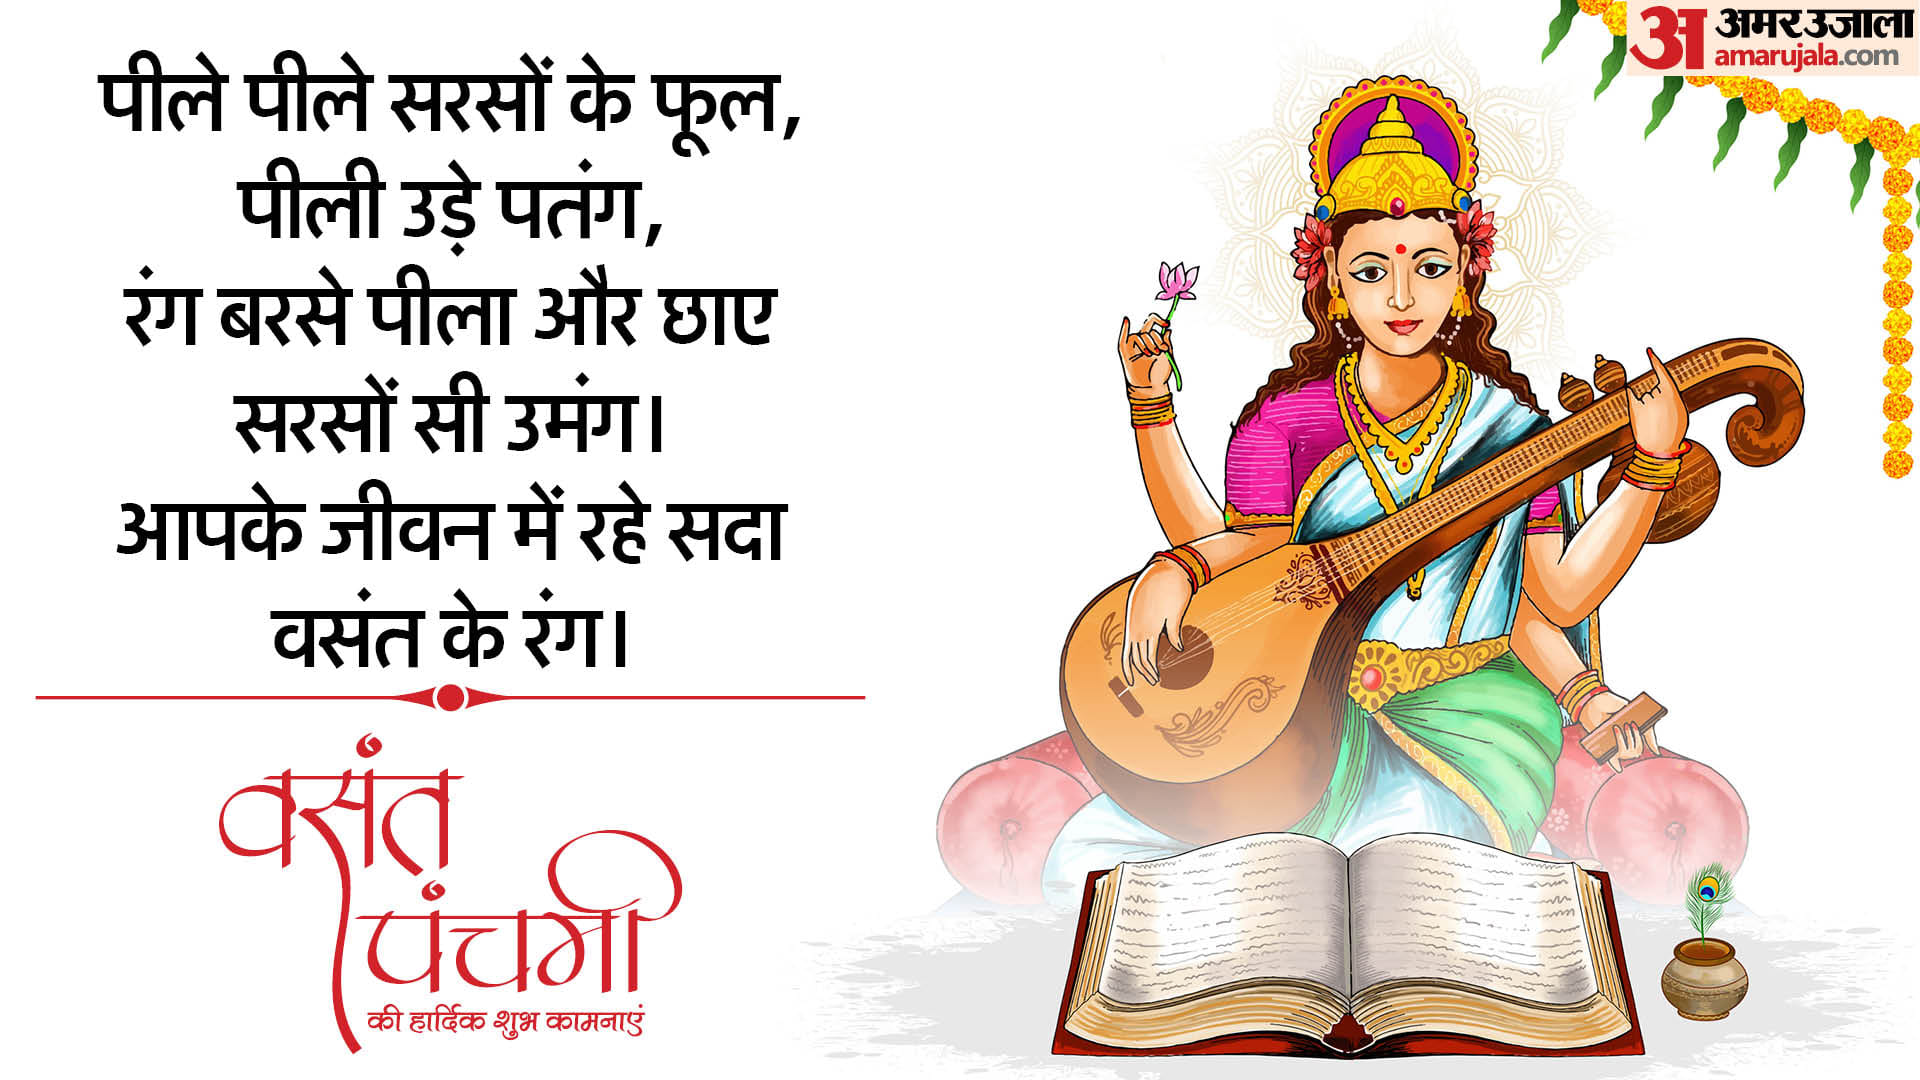 पीले पीले सरसों के फूल,
पीली उड़े पतंग,
रंग बरसे पीला और छाए
सरसों सी उमंग।
आपके जीवन में रहे सदा
वसंत के रंग।
वसंत
पंचमी
की हार्दिक शुभ कामनाएं
अ अमर उजाला
amarujala.com